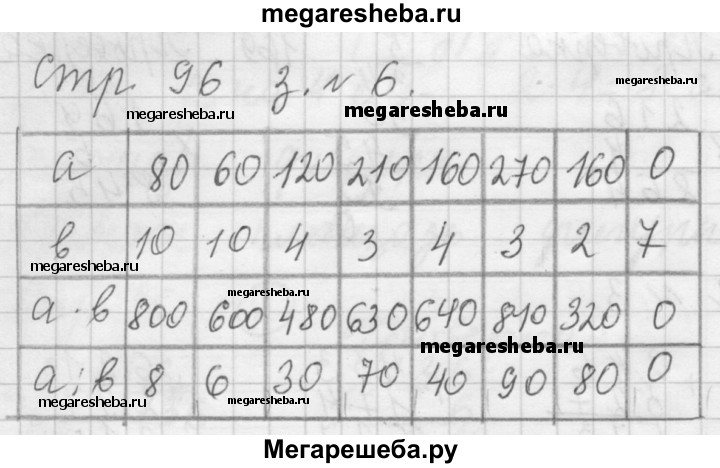 megaresheba.ru
Стр. 96 з. № 6.
megaresheba.ru
megaresheba.ru
megaresheba.ru
а 80 60 120 210 160 270 160 0
в 10 10 4 3 4 3 2 7
megaresheba.ru
megaresheba.ru
а · в 800 600 480 630 640 810 320 0
megaresheba.ru
а : в 8 6 30 70 40 90 80 0
megaresheba.ru
megaresheba.ru
Мегарешеба.ру